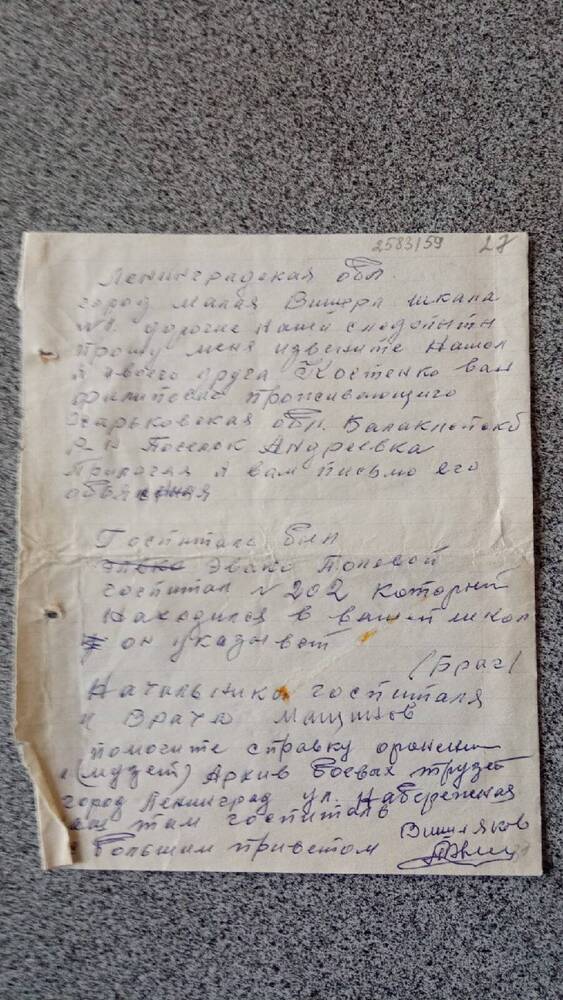 2583/59 27
Ленинградская обл.
город малая Вишера шкала
№1. дорогие наши следопыты
прошу меня извените нашол
я своего друга Костенко Ван
филипович проживающего
Харьковская обл. Балаклейский
Р-н Поселок Андреевка
Прилогая я вам письмо его
Госпиталь был
Эвако Полевой
госпитал №202 который
находился в вашей школ
он указывает
(Брач)
Начальнико госпиталя
и Врача
помогите справку
(музет) Архив боевых
город Ленинград ул. Набережная
там госпиталь
с большим приветом Вишняков